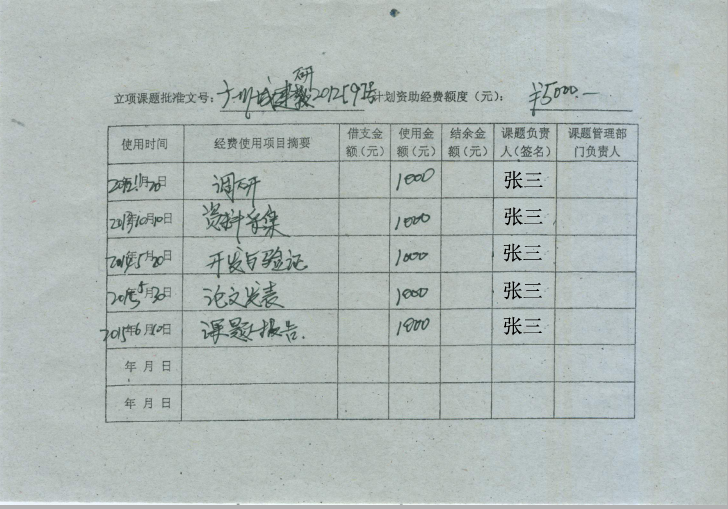 立项课题批准文号: 2012597号 计划资助经费额度(元): ¥5000.—
使用时间 经费使用项目摘要 借支金额(元) 使用金额(元) 结余金额(元) 课题负责人(签名) 课题管理部门负责人
年11月20日 调研 1000 张三
2013年10月10日 资料采集 1000 张三
年5月20日 开发与验证 1000 张三
年5月30日 论文发表 1000 张三
2015年6月10日 课题报告. 1000 张三
年 月 日
年 月 日